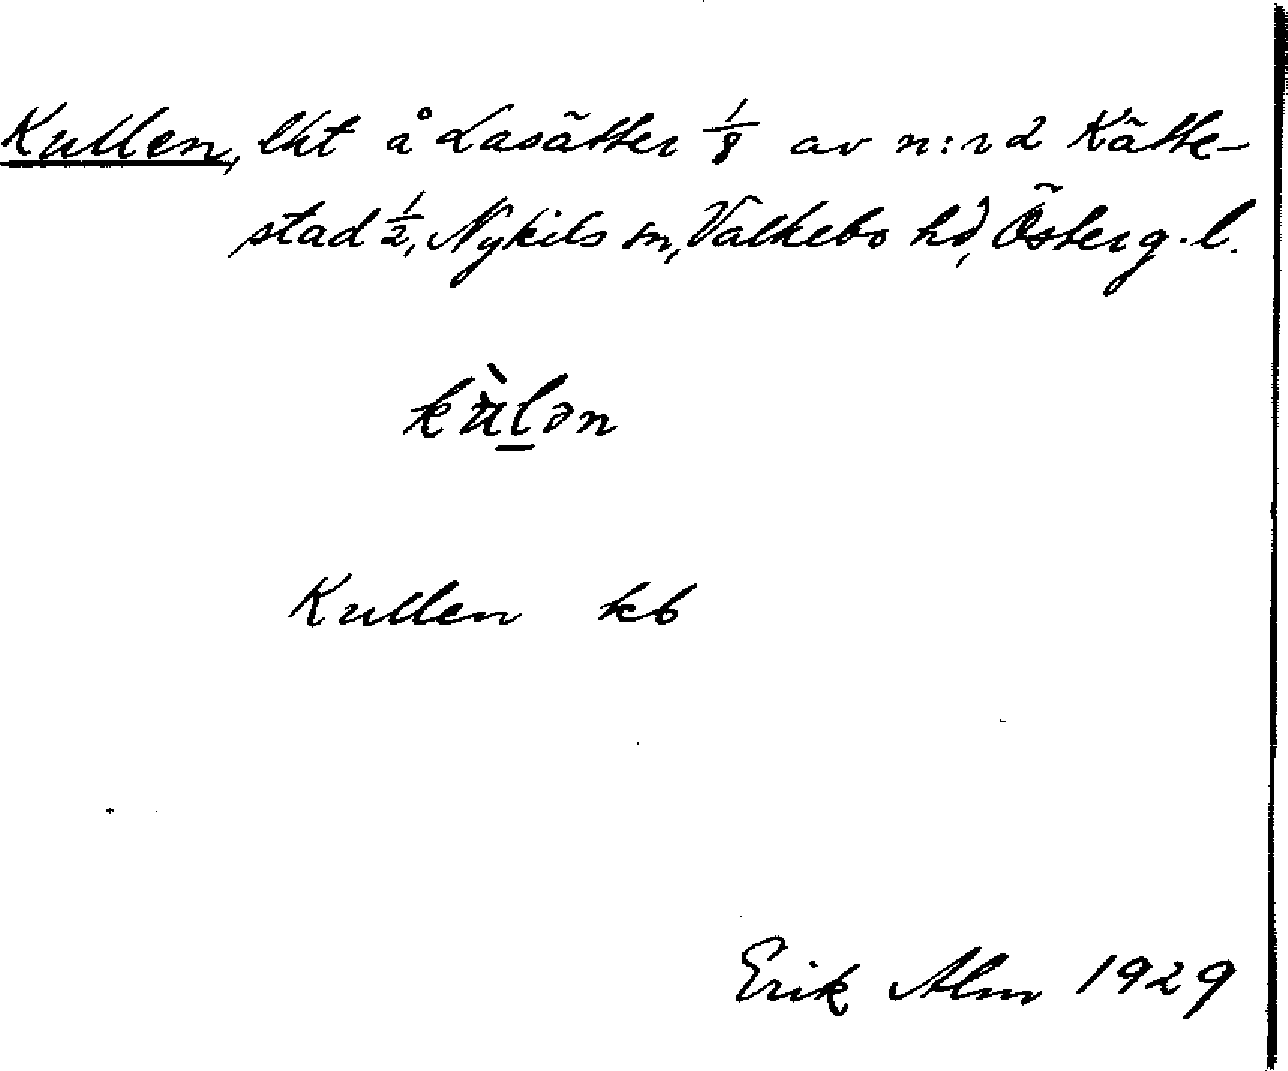 Kullen, lht å Lasätter 1/8 av n:r 2 Kätte-
stad 1/2, Nykils sn, Valkebo hd, Österg. l.
kùlən
Kullen kb
Erik Alm 1929